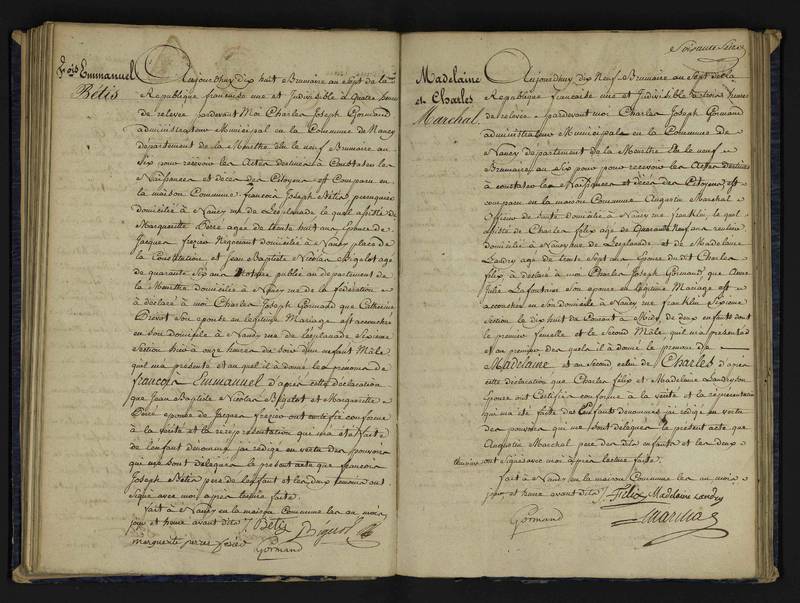 fois Emmanuel
Bétis
Aujourdhuy dix huit Brumaire an Sept de la
Republique francaise une et Indivisible à Quatre heures
de relevée pardevant Moi Charles Joseph Gormand
administrateur Municipal en la Commune de Nancy
departement de la Meurthe élu le neuf Brumaire an
Six pour recevoir les Actes destinés à Constater les
Naissances et décès des Citoyens est Comparu en
la maison Commune francois Joseph Bétis
domicilié à Nancy rue de l'esplanade le quel assisté de
Margueritte agée de trente huit ans Epouse de
Jacques frezier Negociant domicilié à Nancy place de
la Constitution et Jean Baptiste Nicolas Bigelot agé
de quarante Six ans Notaire public au departement de
la Meurthe domicilié à Nancy rue de la féderation
a déclaré à moi Charles Joseph Gormand que Catherine
Prevot Son epouse en légitime Mariage est accouchée
en son domicile à Nancy rue de l'esplanade Sixieme
Section hier à onze heures du soir d'un enfant Mâle
qu'il m'a présenté et au quel il à donné le prenom de
francois Emmanuel d'après cette déclaration
que Jean Baptiste Nicolas Bigelot et Margueritte
épouse de Jacques frezier ont certifié conforme
à la vérité et la représentation qui m'a été faite
de l'enfant dénommé j'ai rédigé en vertu des pouvoirs
qui me sont delegués le present acte que francois
Joseph Bétis pere de l'enfant et les deux temoins ont
Signé avec moi apres lecture faite.
fait à Nancy en la maison Commune les an mois
jour et heure avant dits / Bétis Bigelot
marguerite fesier Gormand
Soixante
Madelaine
et Charles
Marchal
Aujourdhuy dix Neuf Brumaire an Sept de la
Republique francaise une et Indivisible à trois heures
de relevée pardevant moi Charles Joseph Gormand
administrateur Municipal en la Commune de
Nancy departement de la Meurthe élu le neuf
Brumaire an Six pour recevoir les Actes destinés
à constater les Naissances et décès des Citoyens est
comparu en la maison Commune Augustin Marchal
Officier de Santé domicilié à Nancy rue franklin, le quel
assisté de Charles félix agé de Quarante Neuf ans rentier
domicilié à Nancy rue de L'esplanade et de Madelaine
Landry agée de trente Sept ans Epouse dudit Charles
félix à déclaré à moi Charles Joseph Gormand, que Anne
Julie Lafontaine Son epouse en légitime Mariage est
accouchée en son domicile à Nancy rue franklin Sixieme
Section le dix huit du Courant à Midy, de deux enfants dont
le premier femelle et le Second Mâle, qu'il m'a presenté
et au premier des quels il à donné le prenom de
Madelaine et au Second celui de Charles d'après
cette déclaration que Charles félix et Madelaine Landry son
Epouse ont Certifié conforme à la vérité et la représentation
qui m'a été faite des enfants dénommés j'ai rédigé en vertu
des pouvoirs qui me sont delegués le present acte que
Augustin Marchal pere des dits enfants et les deux
temoins ont signé avec moi après lecture faite.
fait à Nancy en la maison Commune les an mois
jour et heure avant dits / Félix Madelaine Landry
Gormand Marchal